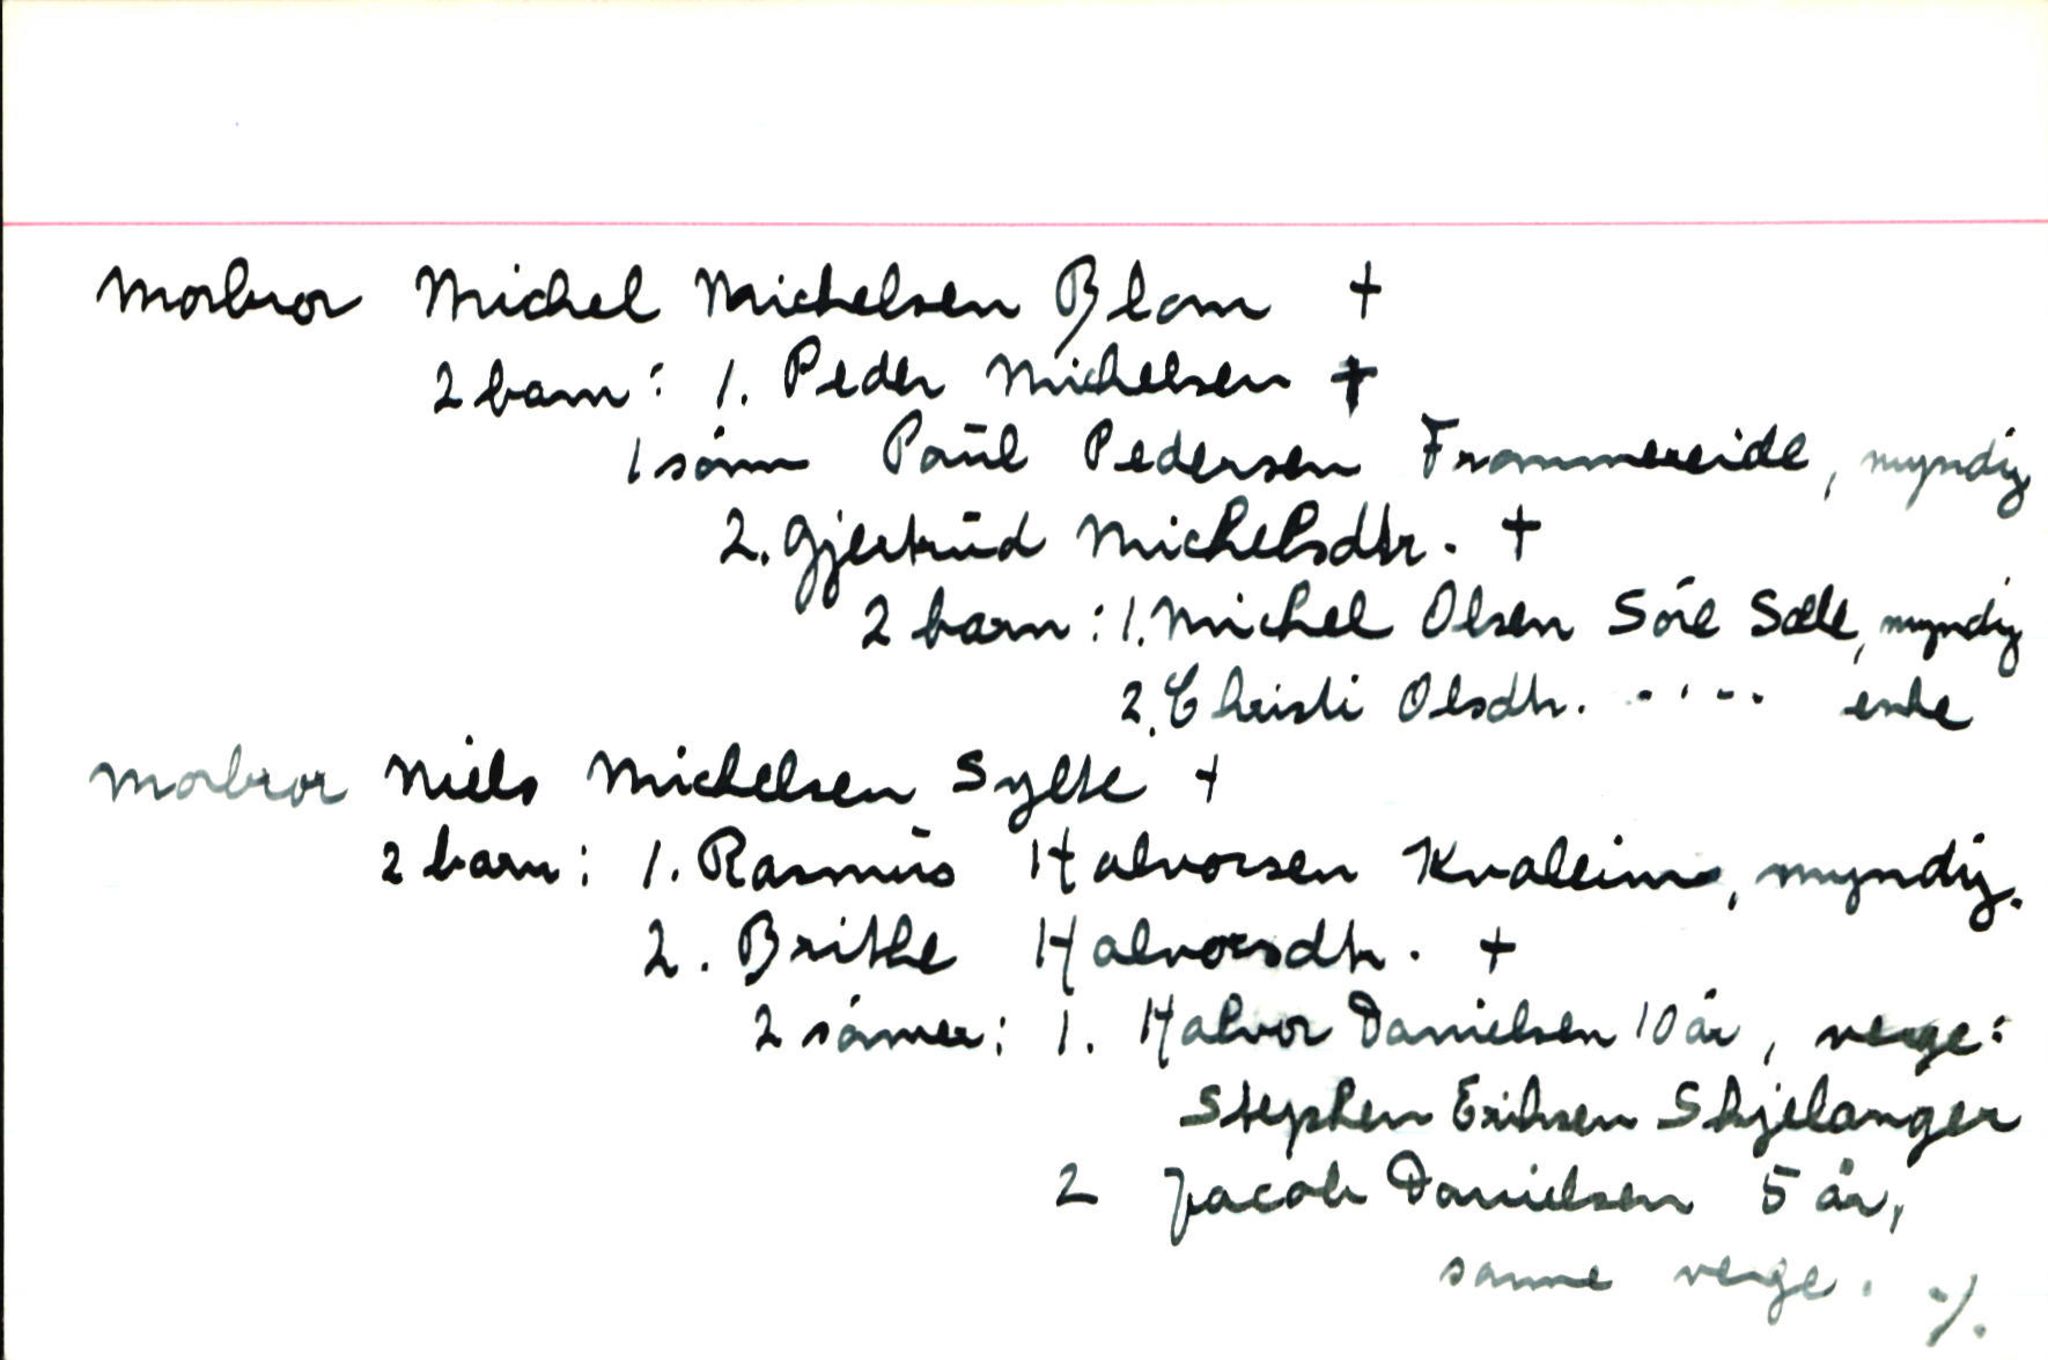 Morbror Michel Michelsen Blom +
2 barn: 1. Peder Michelsen +
1 sönn Paul Pedersen Frommereide, myndig
2. Gjertrud Michelsdtr. +
2 barn: 1. Michel Olsen Söre Sæle, myndig
2. Christi Olsdtr. - ' - - enke
Morbror Niels Michelsen Sylte +
2 barn: 1. Rasmus Halvorsen Kvaleim, myndig.
2. Brithe Halvorsdtr. +
2 sönner: 1. Halvor Danielsen 10 år, verge:
Stephen Eriksen Skjelanger
2 Jacob Danielsen 5 år,
samme verge. ./.